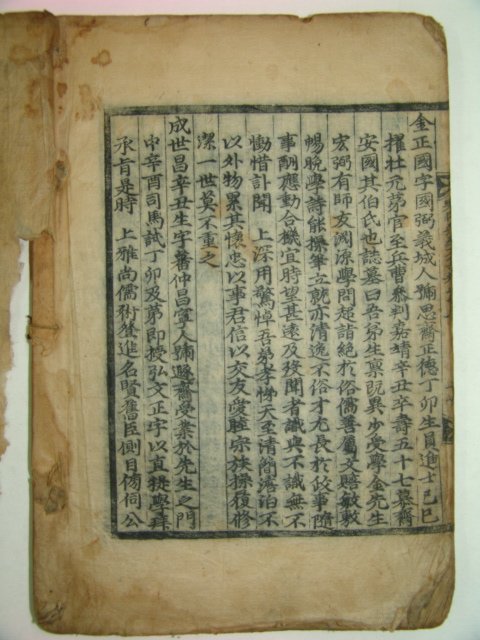 金正國字國弼義城人號思齋正德丁卯生員進士己巳
擢壯元第官至兵曹參判嘉靖辛丑卒壽五十七慕齋
安國其伯氏也誌墓曰吾弟生稟旣異少受學金先生
宏弼有師友淵源學問超詣絶於俗儒善屬文贍敏敷
暢晩學詩能操筆立就亦淸逸不俗才尤長於政事隨
事酬應動合機宜時望甚遠及發聞者識與不識無不
慟惜訃聞 上深用驚悼吾弟孝悌天至淸簡澹泊不
以外物累其懷忠以事君信以交友愛睦宗族操復修
潔一世莫不重之
成世昌辛丑生字蕃仲昌寧人號 齋受業於先生之門
中辛酉司馬試丁卯及第卽授弘文正字以直 學拜
承旨是時 上雅尙儒術登進名賢舊臣側目傷伺公